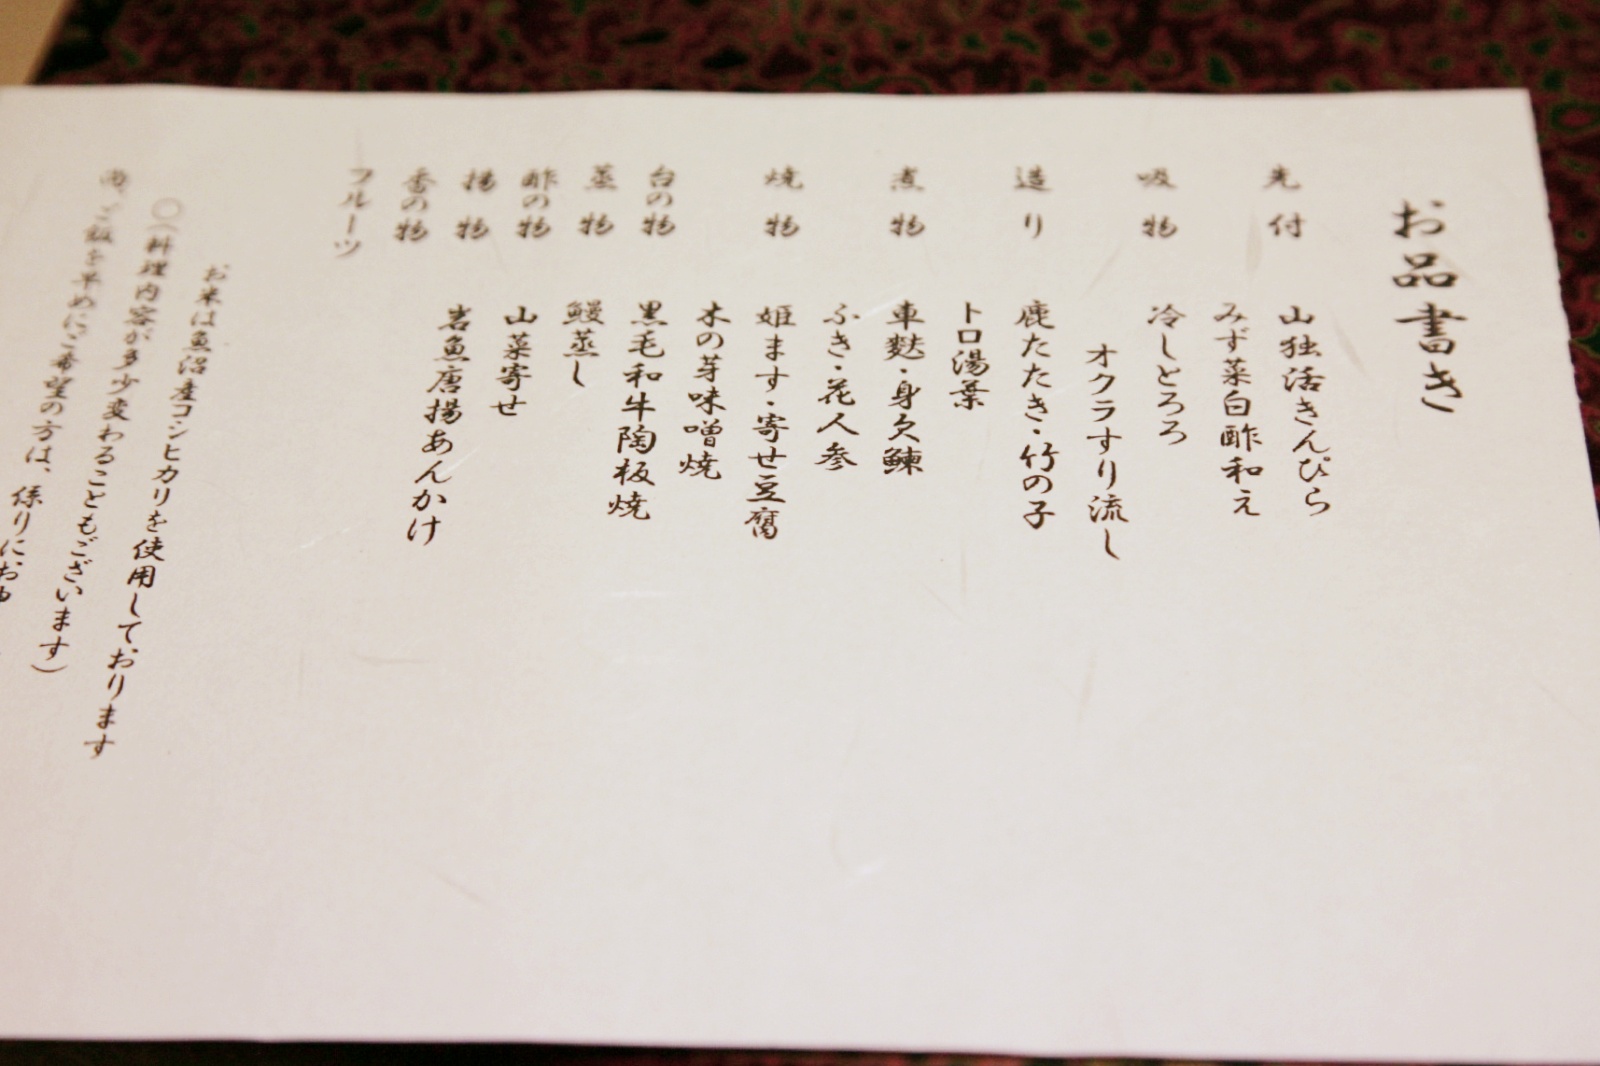 お品書き
先付
山独活きんぴら
みず菜白酢和え
吸物
冷しとろろ
オクラすり流し
造り
鹿たたき・竹の子
トロ湯葉
煮物
車麩・身欠鰊
ふき・花人参
焼物
姫ます・寄せ豆腐
木の芽味噌焼
台の物
黒毛和牛陶板焼
蒸物
鰻蒸し
酢の物
山菜寄せ
揚物
岩魚唐揚あんかけ
香の物
フルーツ
お米は魚沼産コシヒカリを使用しております
○(料理内容が多少変わることもございます)
尚、ご飯を早めにご希望の方は、係りにお